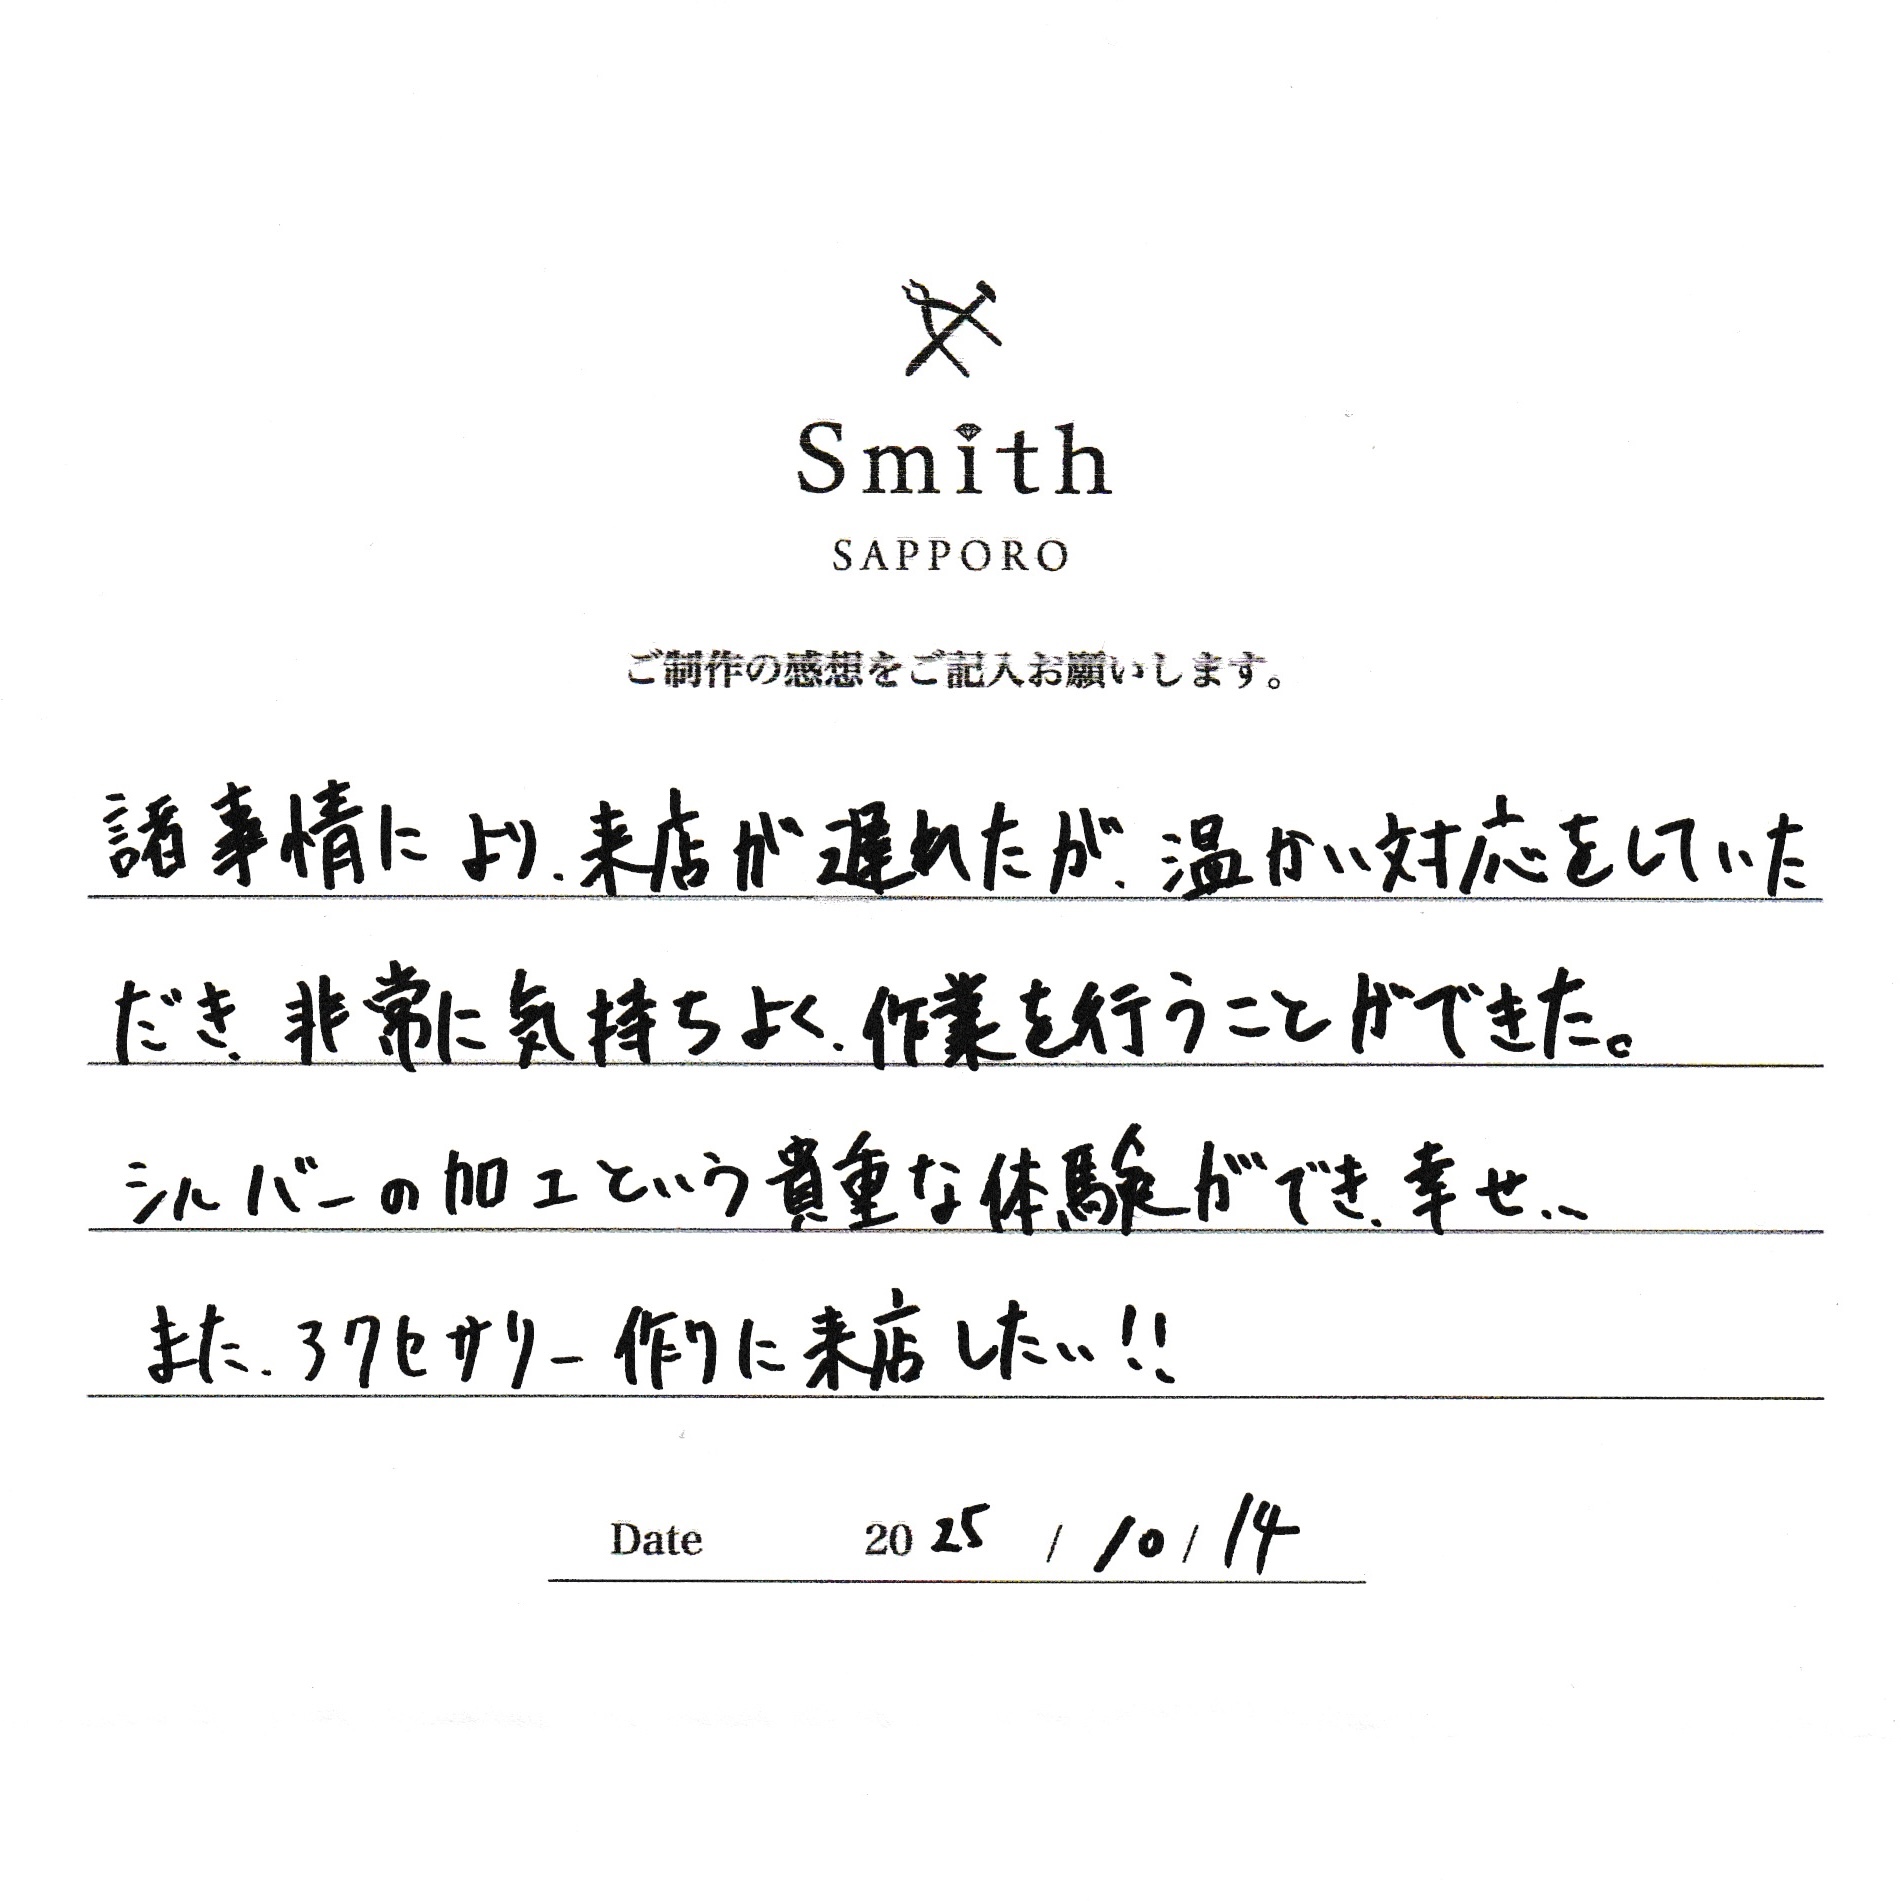 Smith
SAPPORO
ご制作の感想をご記入お願いします。
諸事情により、来店が遅れたが、温かい対応をしていた
だき、非常に気持ちよく、作業を行うことができた。
シルバーの加工という貴重な体験ができ、幸せ、、
また、アクセサリー作りに来店したい!!
Date 2025 / 10 / 14